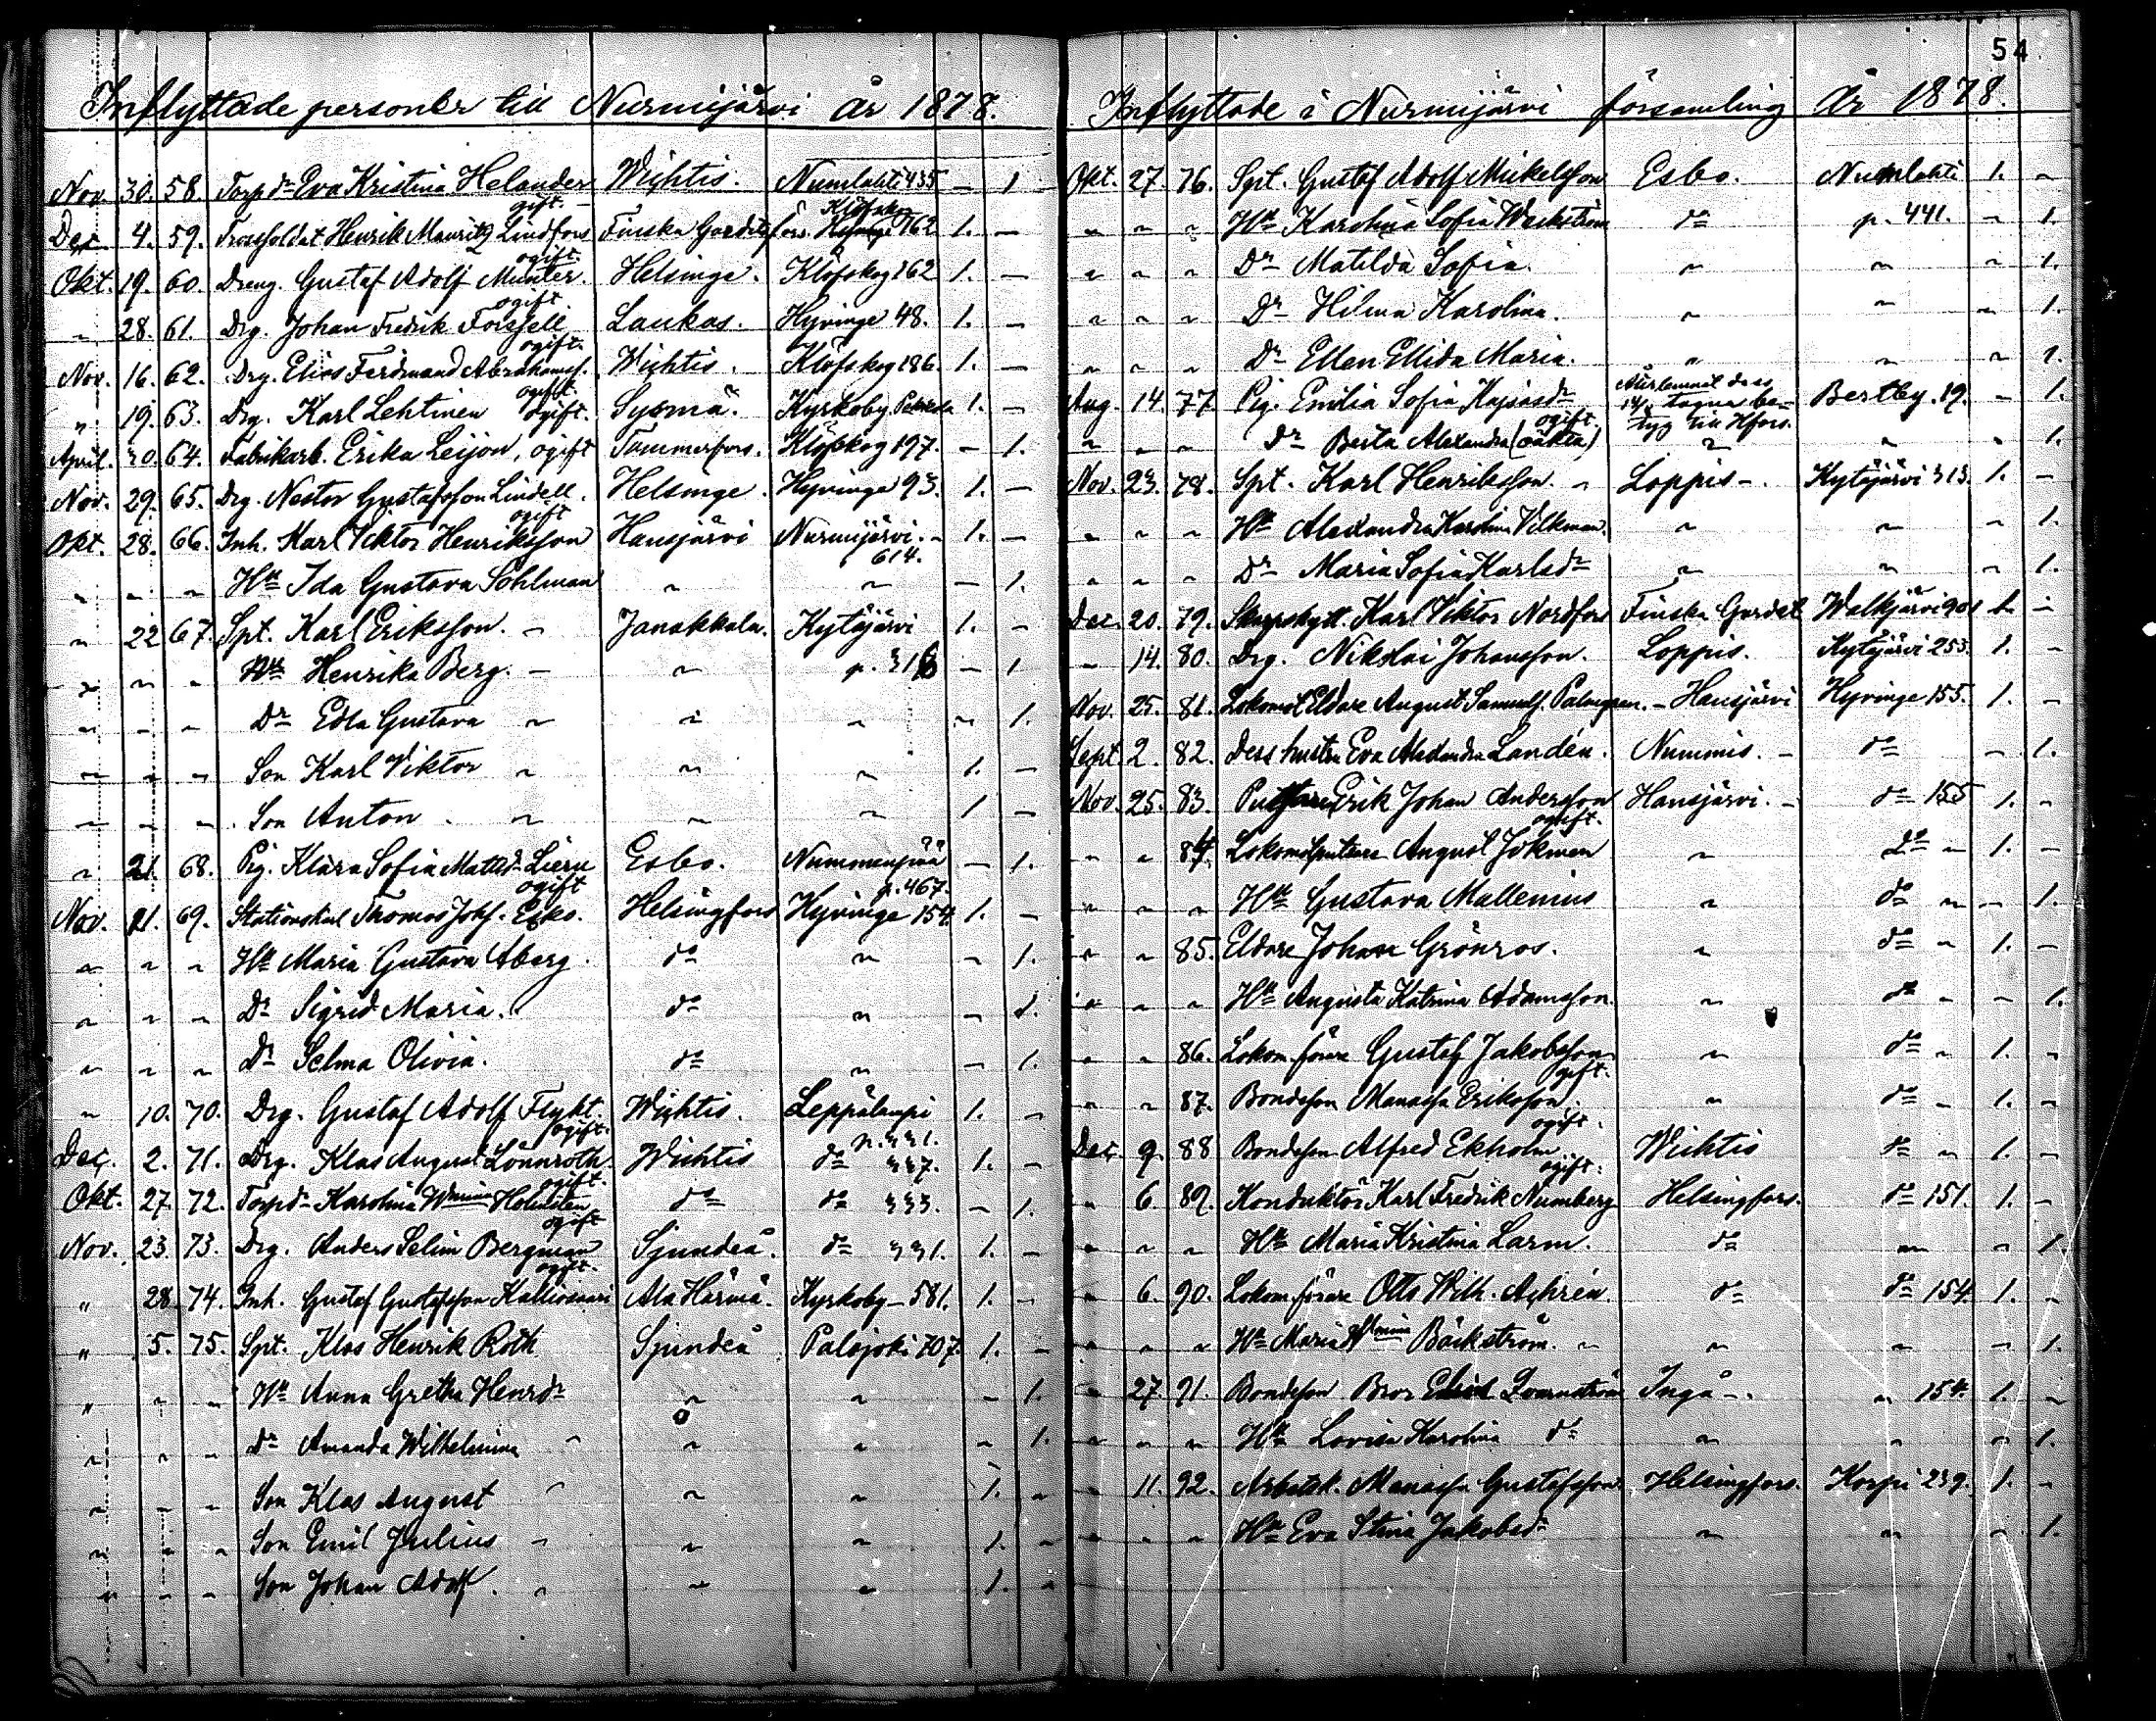 Inflyttade personer till Nurmijärvi år 1878.
Nov. 30. 58. Torpdr Eva Kristina Helander gift. Wichtis. Numlahti 435 – 1
Dec 4. 59. Henrik Mauritz Lindfors ogift. Finska Gardet Klöfskog 162 1. –
Okt. 19. 60. Dreng. Gustaf Adolf Munter. ogift. Helsinge. Klöfskog 162 1. –
" 28. 61. Drg. Johan Fredrik Forssell ogift. Laukas. Hyvinge 48. 1. –
Nov. 16. 62. Drg. Elias Ferdinand Abrahamsf. ogift. Wichtis. Klöfskog 186. 1. –
" 19. 63. Drg. Karl Lehtinen ogift. Sysmä. Kyrkoby 1. –
April. 30. 64. Fabrikarb. Erika Leijon, ogift Tammerfors. Klöfskog 197. – 1.
Nov. 29. 65. Drg. Nestor Gustafsson Lindell. ogift Helsinge. Hyvinge 93. 1. –
Okt. 28. 66. Inh. Karl Viktor Henriksson Hausjärvi Nurmijärvi. 614. 1. –
" " " Hu Ida Gustava Sohlman " " – 1.
" 22 67. Spt. Karl Eriksson. – Janakkala. Kytäjärvi 1. –
" " " Hu Henrika Berg. – " p. 316 – 1
" " " Dr Edla Gustava " " " " 1.
" " " Son Karl Viktor " " " 1. –
" " " Son Anton. " " " 1 –
" 21. 68. Pig. Klara Sofia Mattsdr Lieru ogift Esbo. Nummenpää p. 467. – 1.
Nov. 21. 69. Stationskarl Thomas Johs. Esko. Helsingfors Hyvinge 154. 1. –
" " " Hu Maria Gustava Åberg. do " – 1.
" " " Dr Sigrid Maria. do " – 1.
" " " Dr Selma Olivia. do " – 1.
" 10. 70. Drg. Gustaf Adolf Flykt. ogift. Wichtis. Leppälampi p. 331. 1. –
Dec. 2. 71. Drg. Klas August Lönnroth. ogift. Wichtis do 337. 1. –
Okt. 27. 72. Torpdr Karolina Wmina Holmsten ogift do do 333. – 1.
Nov. 23. 73. Drg. Anders Selim Bergman ogift. Sjundeå. do 331. 1. –
" 28. 74. Inh. Gustaf Gustafsson Ala Härmä. Kyrkoby – 581. 1. –
" 5. 75. Spt. Klas Henrik Roth Sjundeå Palojoki 707. 1. –
" " " Hu Anna Gretha Henrdr " " – 1.
" " " Dr Amanda Wilhelmina " " " " 1.
" " " Son Klas August " " " 1. "
" " " Son Emil Julius – " " 1. "
" " " Son Johan Adolf. " " " 1. "
54
Inflyttade i Nurmijärvi församling År 1878.
Okt. 27. 76. Spt. Gustaf Adolf Mickelsson Esbo. Numlahti 1. –
" " " Hu Karolina Sofia Weckström do p. 441. – 1.
" " " Dr Matilda Sofia. " " " 1.
" " " Dr Hilma Karolina. " " " 1.
" " " Dr Ellen Ellida Maria. " " " 1.
Aug. 14. 77. Pig. Emilia Sofia Kajsasdr ogift. dess tagna betyg till Hfors. Bertby. 19. – 1.
" " " Dr Berta Alexandra (oäkta) " " " 1.
Nov. 23. 78. Spt. Karl Henriksson. " Loppis – . Kytäjärvi 313. 1. –
" " " Hu Alexandra Karolina Vilkman. " " " 1.
" " " Dr Maria Sofia Karlsdr " " " 1.
Dec. 20. 79. Skarpskytt. Karl Viktor Nordfors Finska Gardet Walkjärvi 901 1. –
" 14. 80. Drg. Nikolai Johansson. Loppis. Kytäjärvi 253. 1. –
Nov. 25. 81. Lokomot Eldare August Samuels. Palmgren. – Hausjärvi Hyvinge 155. 1. –
Sept. 2. 82. Dess hustru Eva Alexandra Landén. Nummis. – do – 1.
Nov. 25. 83. Putsare Erik Johan Andersson ogift. Hausjärvi. – do 155 1. "
" " 84. Lokomotputsare August Jokinen " do " 1. –
" " " Hu Gustava Mallenius " do " – 1.
" " 85. Eldare Johan Grönroos. " do " 1. –
" " " Hu Augusta Katrina Adamsson. " do " – 1.
" " 86. Lokom. förare Gustaf Jakobsson gift. " do " 1. "
" " 87. Bondeson Manasse Eriksson. ogift. " do – 1. "
Dec. 9. 88 Bondeson Alfred Ekholm ogift. Wichtis do " 1. –
" 6. 89. Konduktör Karl Fredrik Numberg Helsingfors. do 151. 1. –
" " " Hu Maria Kristina Larm. do " " 1
" 6. 90. Lokom. förare Otto Wilh. Achrén do do 154. 1. –
" " " Hu Maria Wlmina Bäckström. " " " – 1.
" 27. 91. Bondeson Bror Ingå – . " 154. 1. "
" " " Hu Lovisa Karolina do " " " 1.
" 11. 92. Arbetsk. Manasse Gustafsson. Helsingfors. Korpi 239. 1. –
" " " Hu Eva Stina Jakobsdr " " " 1.